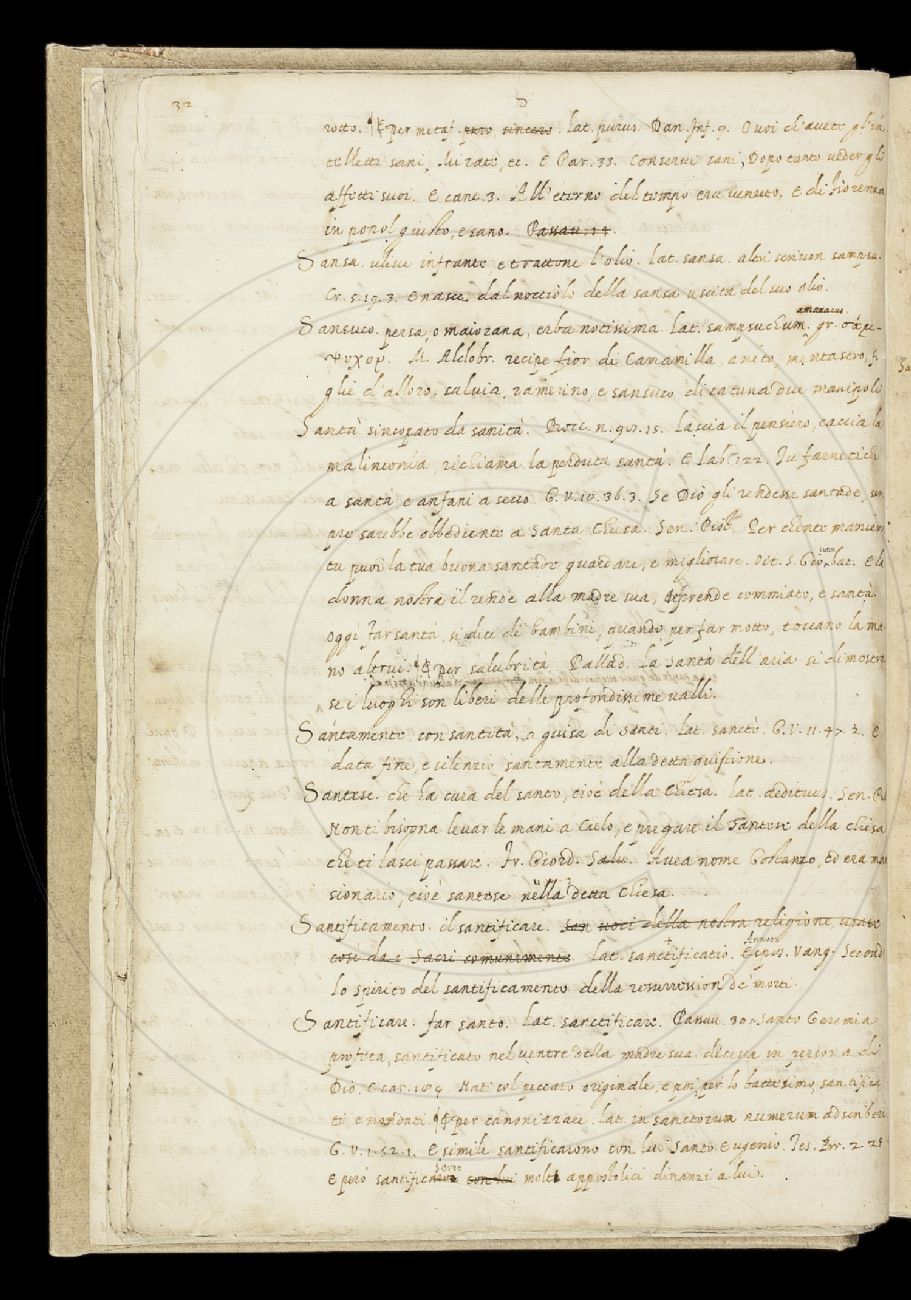 32
rotto. ¶ E per metaf. puro sincero. lat. purus. Dan. Inf. 9. O voi ch'avete gl'in
telletti sani, mirate, et. E Par. 33. Conservi sani, Dopo tanto veder gli
affetti suoi. E cant. 3. All'eterno del tempo era venuto. E di Fiorenza
in popol giusto, e sano. Passau. 14.
Sansa. ulive infrante e trattone l'olio. lat. sansa. altri scrivon sampsa.
Cr. 5. 19. 3. E nasce, dal nocciolo della sansa uscita del suo olio.
amaracus
Sansuco. persa, o maiorana, erba notissima. lat. sampsuchum. gr.
M. Aldobr. recipe fior di Camamilla, aneto, mentastro, f
glie d'alloro, salvia, ramerino, e sansuco di catuna due manipoli
Santà sincopato da sanità. Bocc. n. 98. 15. lascia il pensiero, caccia la
malinconía, richiama la perduta santà. E lab. 122. Tu farnetichi
a santà e anfani a secco. G. V. 10. 36. 3. Se Dio gli rendesse santade, sem
pre sarebbe obbediente a Santa Chiesa. Sen. Pist. Per chente maniera
tu puoi la tua buona santade guardare, e migliorare. Ott. S. Gio. bat. E la
donna nostra il rende alla madre sua, e prende commiato, e santà.
Oggi far santà, si dice de bambini, quando per far motto, toccano la ma
no altrui. ¶ E per salubrità. Pallad. La santà dell'aria si dimostra
se i luoghi son liberi delle profondissime valli.
Santamente con santità, a guisa di santi. lat. sanctè. G. V. 11. 47. 2. E
data fine, e silenzio santamente alla detta quistione.
Santese. che ha cura del santo, cioè della Chiesa. lat. aedituus. Sen. Pi
Non ti bisogna levar le mani a Cielo, e pregare il santese della chiesa
che ti lasci passare. Fr. Giord. Salv. Avea nome Costanzo, ed era man
sionario, cioè santese nella detta Chiesa.
Santificamento. il santificare. son voci della nostra religione, usate
così da i sacri comunemente. lat. sanctificatio. Annot. Vang. Secondo
lo spirito del santificamento della resurression de' morti.
Santificare. far santo. Lat. sanctificare. Passau. 30. Santo Geremia
profeta, santificato nel ventre della madre sua. diceva in persona di
Dio. E car. 109. Nati col peccato originale, e poi, per lo battesimo, santifica
ti, e mondati. ¶ E per canonizzare. lat. in sanctorum numerum adscribere
G. V. 1. 52. 1. E simile santificarono con lui Santo Eugenio. Tes. Br. 2. 25
E però santificare con lui molti appostolici dinanzi a lui.